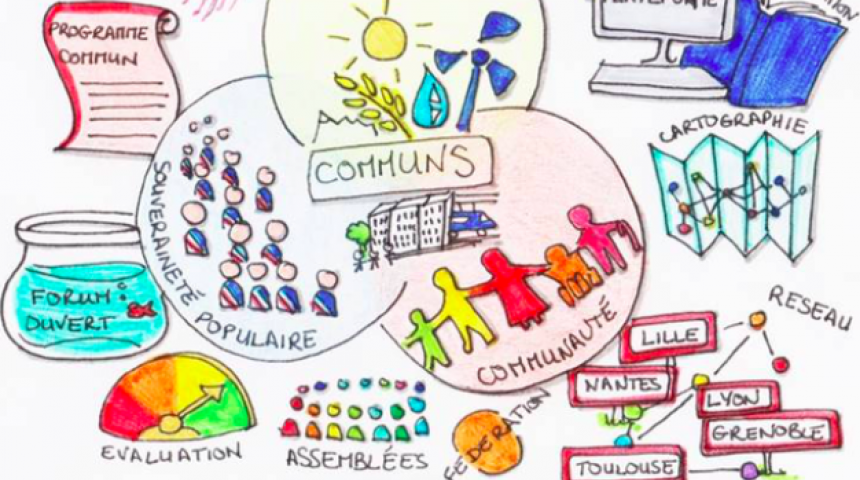 PROGRAMME
COMMUN
COMMUNS
CARTOGRAPHIE
SOUVERAINETÉ POPULAIRE
FORUM
OUVERT
COMMUNAUTÉ
RESEAU
LILLE
NANTES
LYON
GRENOBLE
TOULOUSE
EVALUATION
ASSEMBLÉES
FEDERATION